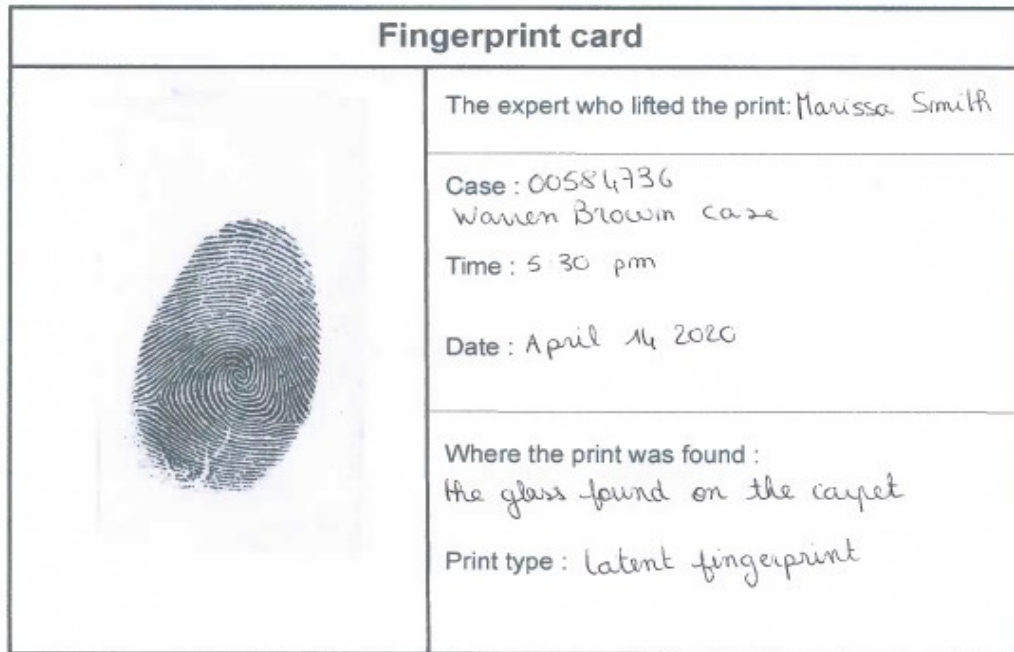 Fingerprint card
The expert who lifted the print: Marissa Smith
Case : 00584736
Warren Brown case
Time : 5:30 pm
Date : April 14 2020
Where the print was found :
the glass found on the carpet
Print type : latent fingerprint